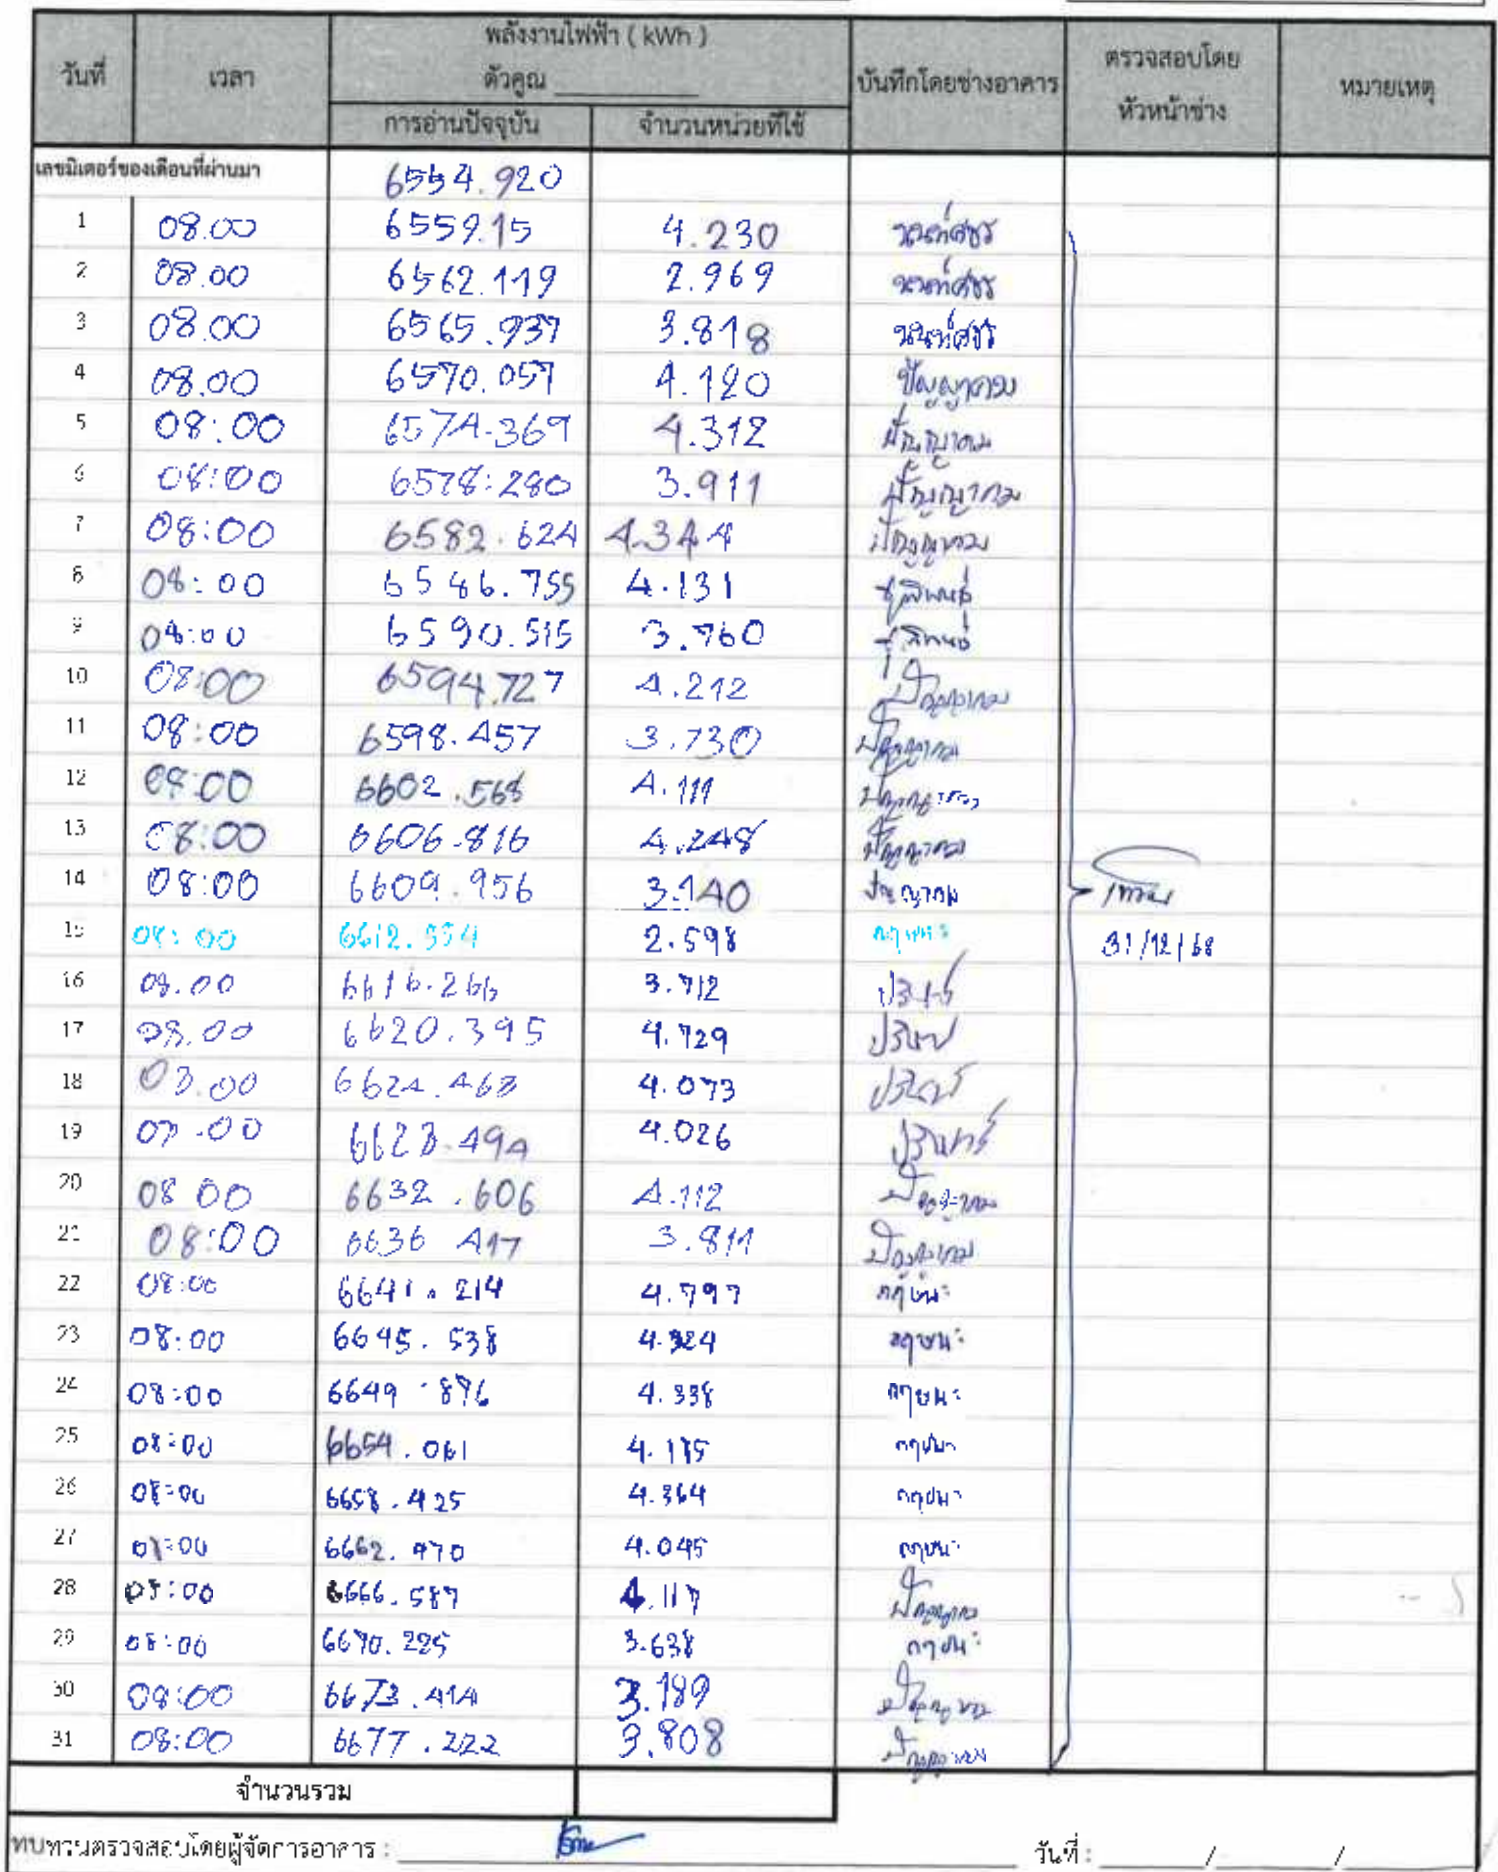 พลังงานไฟฟ้า ( kWh )
วันที่ เวลา ตัวคูณ บันทึกโดยช่างอาคาร ตรวจสอบโดย หัวหน้าช่าง หมายเหตุ
การอ่านปัจจุบัน จำนวนหน่วยที่ใช้
เลขมิเตอร์ของเดือนที่ผ่านมา 6554.920
1 08.00 6559.15 4.230 นนท์ศธร
2 08.00 6562.119 2.969 นนท์ศธร
3 08.00 6565.937 3.818 นนท์ศธร
4 08.00 6570.057 4.120 ปัญญาคม
5 08:00 6574.369 4.312 ปัญญาคม
6 08:00 6578:280 3.911 ปัญญาคม
7 08:00 6582.624 4.344 ปัญญาคม
8 08:00 6586.755 4.131
9 08:00 6590.515 3.760
10 08:00 6594.727 4.212 ปัญญาคม
11 08:00 6598.457 3.730 ปัญญาคม
12 08:00 6602.568 4.111 ปัญญาคม
13 08:00 6606.816 4.248 ปัญญาคม
14 08:00 6609.956 3.140 ปัญญาคม
15 08:00 6612.554 2.598 กฤษณะ 31/12/68
16 08.00 6616.266 3.712
17 08.00 6620.395 4.729
18 08.00 6624.468 4.073
19 08.00 6628.494 4.026
20 08 00 6632.606 4.112 ปัญญาคม
21 08:00 6636 417 3.811 ปัญญาคม
22 08:00 6641.214 4.797 กฤษณะ
23 08:00 6645.538 4.324 กฤษณะ
24 08:00 6649.876 4.338 กฤษณะ
25 08:00 6654.061 4.185 กฤษณะ
26 08:00 6658.425 4.364 กฤษณะ
27 08:00 6662.470 4.045 กฤษณะ
28 08:00 6666.587 4.117 ปัญญาคม
29 08:00 6670.225 3.638 กฤษณะ
30 08:00 6673.414 3.189 ปัญญาคม
31 08:00 6677.222 3.808 ปัญญาคม
จำนวนรวม
ทบทวนตรวจสอบโดยผู้จัดการอาคาร : วันที่ : / /